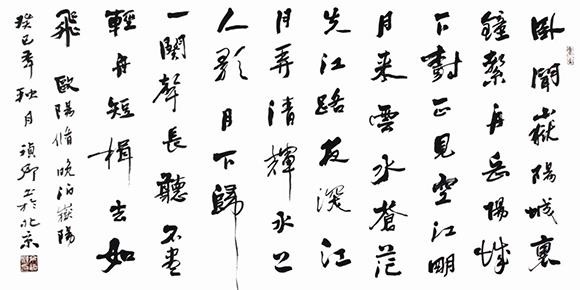 臥聞嶽陽城裏
鐘繫舟岳陽城
下樹正見空江明
月來雲水蒼茫
失江路夜深江
月弄清輝水上
人歌月下歸
一闋聲長聽不盡
輕舟短楫去如
飛 歐陽脩晚泊嶽陽
癸巳年秋月 於北京